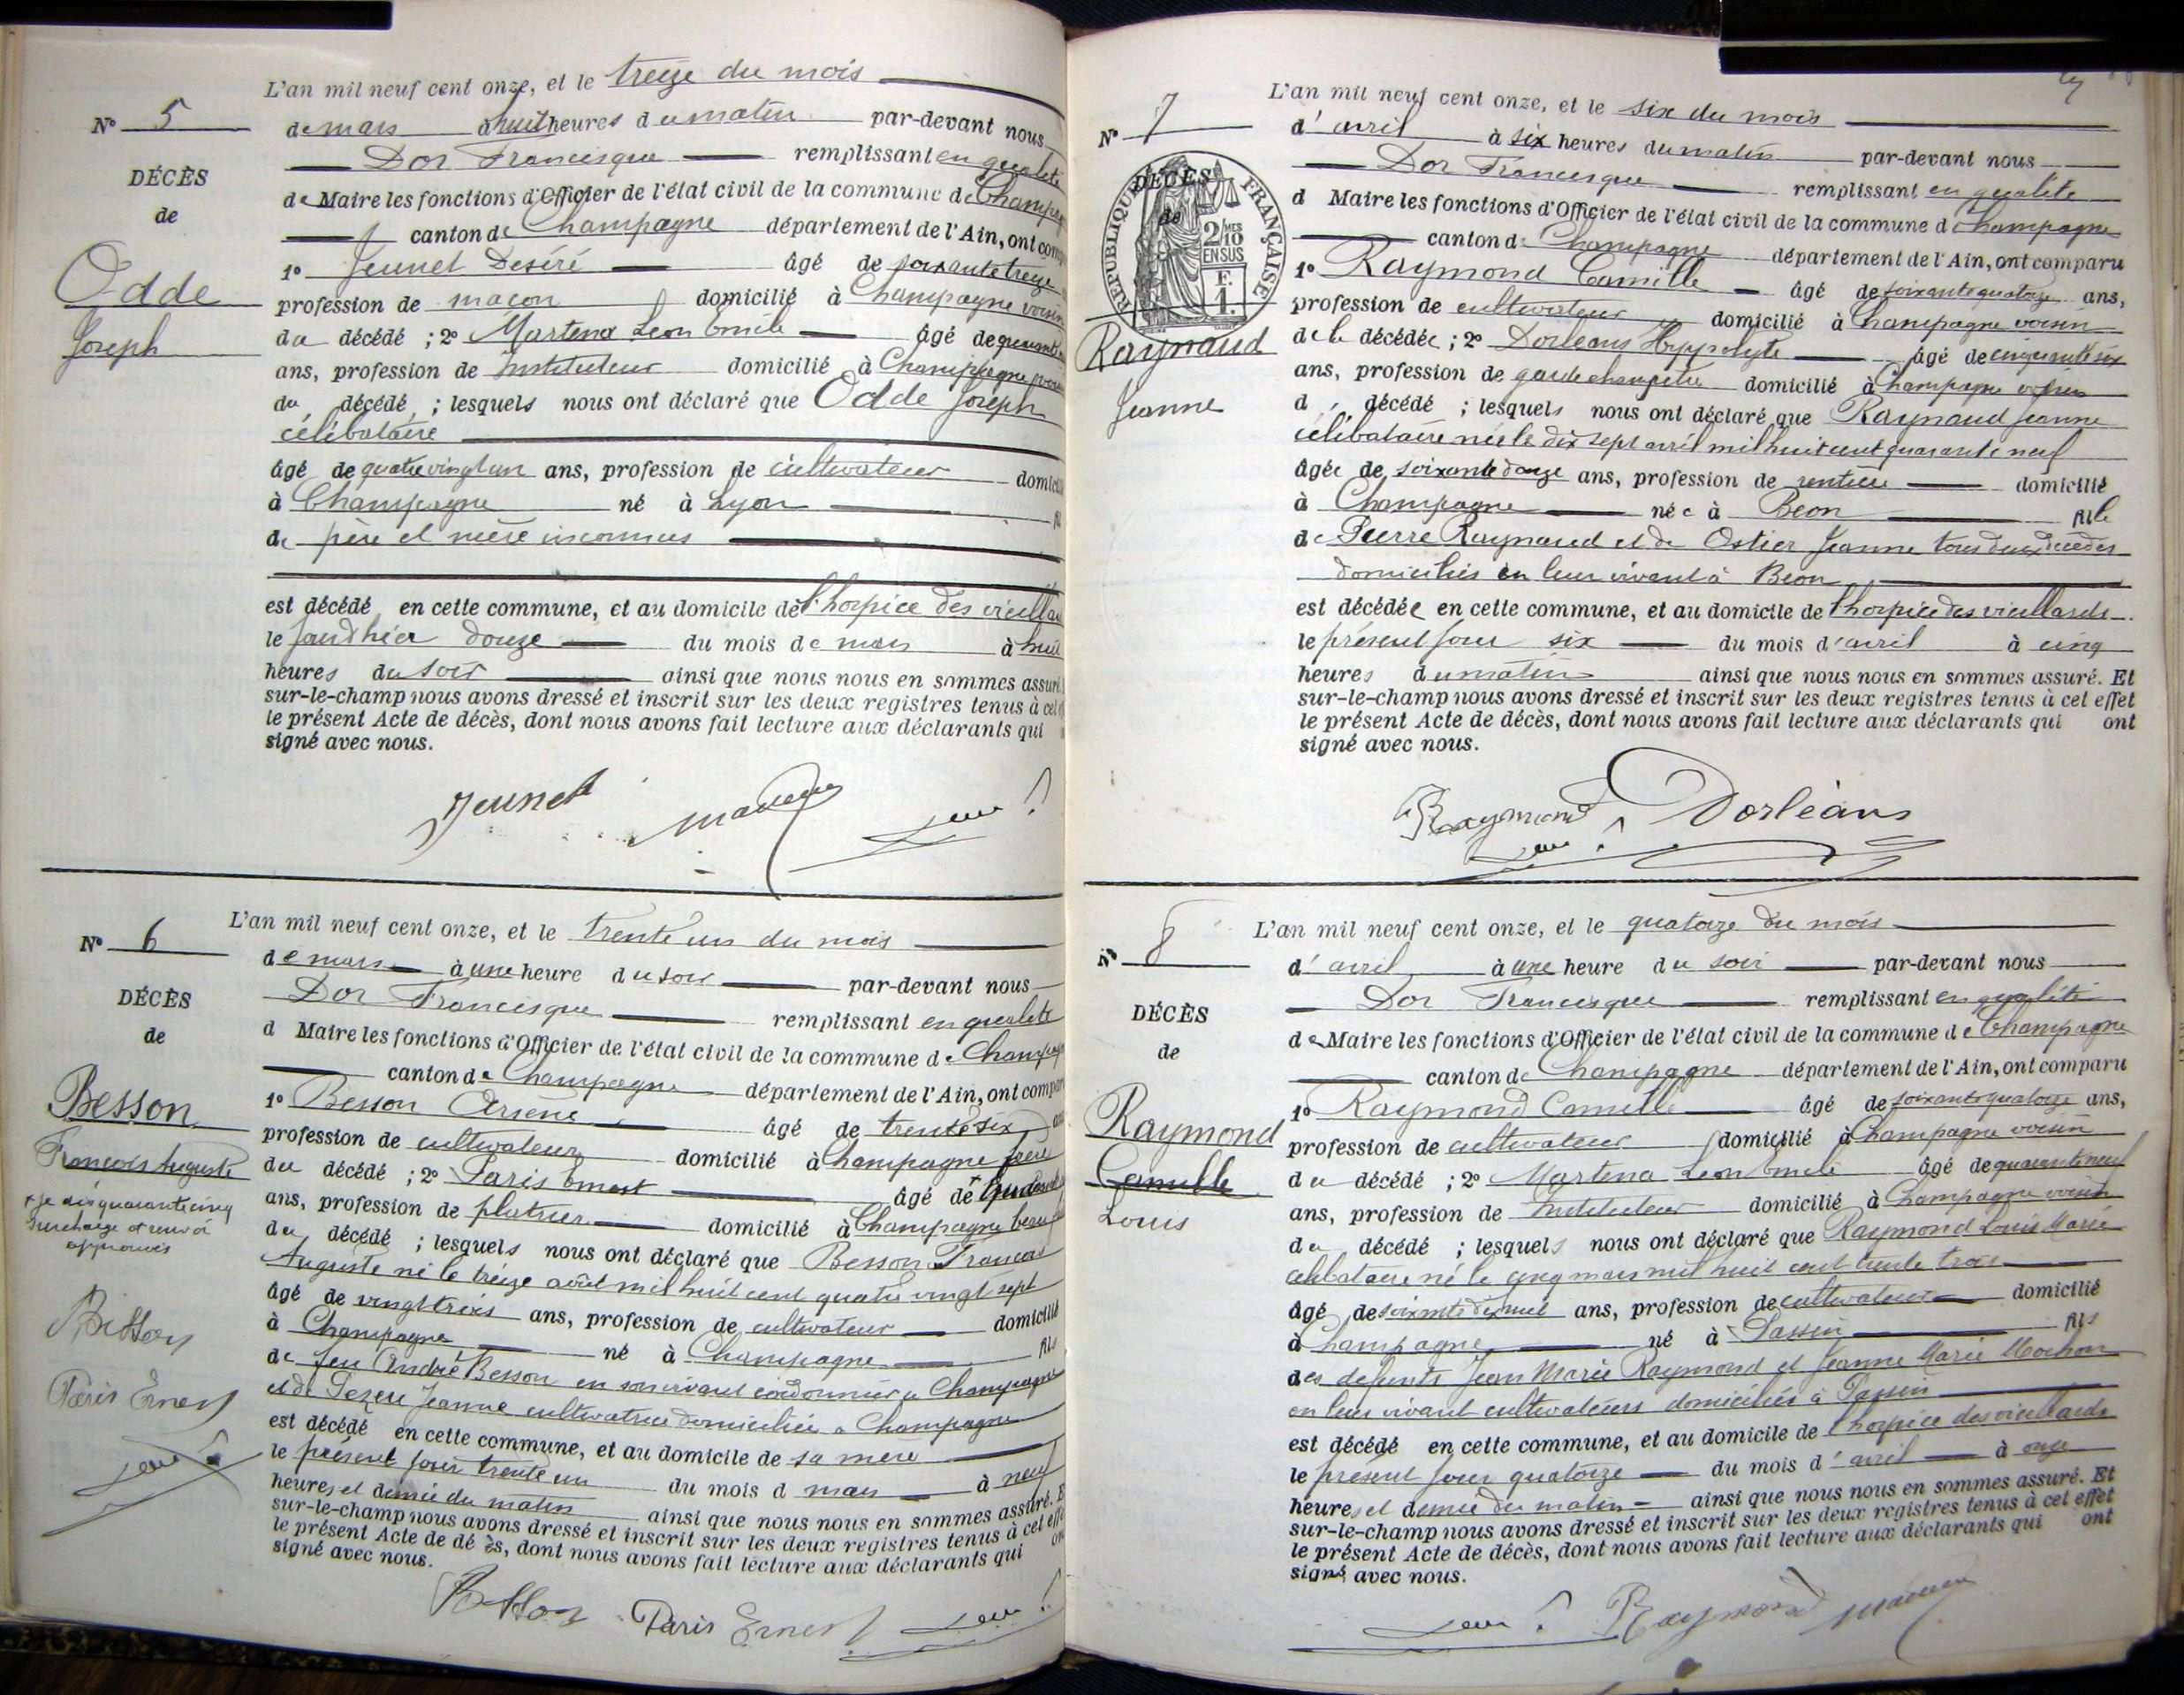 L'an mil neuf cent onze, et le treize du mois
N° 5
de mars à huit heures du matin par-devant nous
Dor Francisque remplissant en qualité
DÉCÈS
de Maire les fonctions d'Officier de l'état civil de la commune de Champag
de
canton de Champagne département de l'Ain, ont comp
Odde
Joseph
1° Jeunet Deséré âgé de soixante treize
profession de maçon domicilié à Champagne voisin
du décédé ; 2° Martena Leon Emile âgé de quarante
ans, profession de Instituteur domicilié à Champagne
du décédé ; lesquels nous ont déclaré que Odde Joseph
célibataire
âgé de quatre vingt un ans, profession de cultivateur domicilié
à Champagne né à Lyon fil
de père et mère inconnus
est décédé en cette commune, et au domicile de l'hospice des vieillar
le jour d'hier douze du mois de mars à huit
heures du soir ainsi que nous nous en sommes assuré.
sur-le-champ nous avons dressé et inscrit sur les deux registres tenus à cet
le présent Acte de décès, dont nous avons fait lecture aux déclarants qui
signé avec nous.
Jeunet
L'an mil neuf cent onze, et le trente un du mois
N° 6
de mars à une heure du soir par-devant nous
Dor Francisque remplissant en qualité
DÉCÈS
d Maire les fonctions d'Officier de l'état civil de la commune de Champagn
de
canton de Champagne département de l'Ain, ont compar
Besson
François Auguste
+ je dis quarante cinq
surcharge et renvoi
approuvés
Besson
Paris Ernest
1° Besson Arsène âgé de trente six ans
profession de cultivateur domicilié à Champagne frère
du décédé ; 2° Paris Ernest âgé de
ans, profession de platrier domicilié à Champagne beau
du décédé ; lesquels nous ont déclaré que Besson François
Auguste né le treize août mil huit cent quatre vingt sept
âgé de vingt trois ans, profession de cultivateur domicilié
à Champagne né à Champagne fils
de feu André Besson en son vivant cordonnier à Champagne
et de Jeanne cultivatrice domiciliée à Champagne
est décédé en cette commune, et au domicile de sa mère
le présent jour trente un du mois d mars à neuf
heures et demie du matin ainsi que nous nous en sommes assuré. E
sur-le-champ nous avons dressé et inscrit sur les deux registres tenus à cet effe
le présent Acte de dé ès, dont nous avons fait lecture aux déclarants qui on
signé avec nous.
Besson Paris Ernest
L'an mil neuf cent onze, et le six du mois
N° 7
d'avril à six heures du matin par-devant nous
Dor Francisque remplissant en qualité
RÉPUBLIQUE FRANÇAISE
2/10 MES
EN SUS
F.
1.
DÉCÈS
de
d Maire les fonctions d'Officier de l'état civil de la commune d Champagne
canton de Champagne département de l'Ain, ont comparu
Raynaud
Jeanne
1° Raymond Camille âgé de soixante quatorze ans,
profession de cultivateur domicilié à Champagne voisin
de la décédée ; 2° Dorleans Hyppolyte âgé de cinquante six
ans, profession de garde champêtre domicilié à Champagne voisin
d décédé ; lesquels nous ont déclaré que Raynaud Jeanne
célibataire née le dix sept avril mil huit cent quarante neuf
âgée de soixante douze ans, profession de rentière domicilié
à Champagne née à Beon fille
de Pierre Raynaud et de Ostier Jeanne tous deux décédés
domiciliés en leur vivant à Beon
est décédée en cette commune, et au domicile de l'hospice des vieillards
le présent jour six du mois d'avril à cinq
heures du matin ainsi que nous nous en sommes assuré. Et
sur-le-champ nous avons dressé et inscrit sur les deux registres tenus à cet effet
le présent Acte de décès, dont nous avons fait lecture aux déclarants qui ont
signé avec nous.
Raymond Dorléans
L'an mil neuf cent onze, et le quatorze du mois
N° 8
d'avril à une heure du soir par-devant nous
Dor Francisque remplissant en qualité
DÉCÈS
de Maire les fonctions d'Officier de l'état civil de la commune de Champagne
de
canton de Champagne département de l'Ain, ont comparu
Raymond
Camille
Louis
1° Raymond Camille âgé de soixante quatorze ans,
profession de cultivateur domicilié à Champagne voisin
du décédé ; 2° Martena Leon Emile âgé de quarante neuf
ans, profession de Instituteur domicilié à Champagne voisin
du décédé ; lesquels nous ont déclaré que Raymond Louis Marie
celibataire né le cinq mars mil huit cent trente trois
âgé de soixante dix huit ans, profession de cultivateur domicilié
à Champagne né à Passin fils
des defunts Jean Marie Raymond et Jeanne Marie Mochon
en leur vivant cultivateurs domiciliés à Passin
est décédé en cette commune, et au domicile de l'hospice des vieillards
le présent jour quatorze du mois d'avril à onze
heures et demie du matin ainsi que nous nous en sommes assuré. Et
sur-le-champ nous avons dressé et inscrit sur les deux registres tenus à cet effet
le présent Acte de décès, dont nous avons fait lecture aux déclarants qui ont
signé avec nous.
Raymond